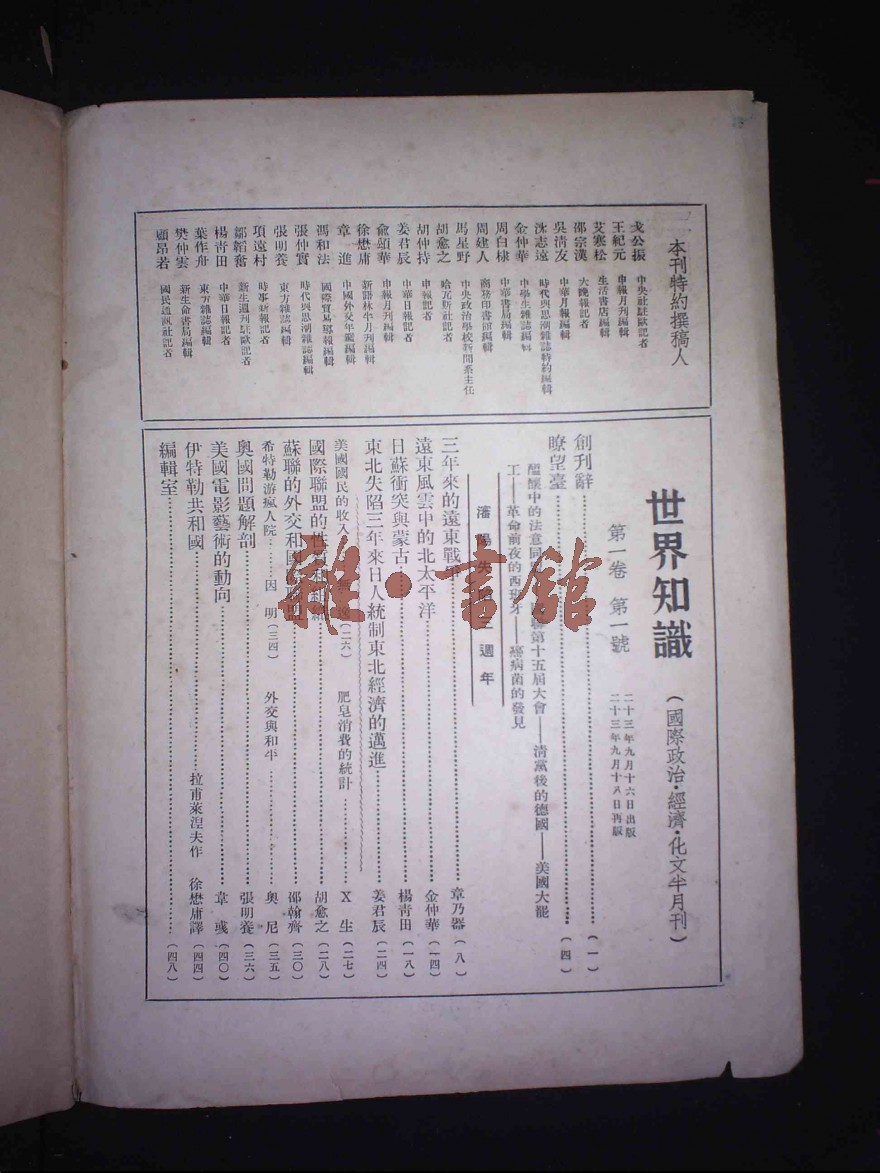 本刊特約撰稿人
戈公振 中央社駐歐記者
王紀元 申報月刊編輯
艾寒松 生活書店編輯
邵宗漢 大晚報記者
吳清友 中華月報編輯
沈志遠 時代與思潮雜誌特約編輯
金仲華 中學生雜誌編輯
周白棣 中華書局編輯
周建人 商務印書館編輯
馬星野 中央政治學校新聞系主任
胡愈之 哈瓦斯社記者
胡仲持 申報記者
姜君辰 中華日報記者
俞頌華 申報月刊編輯
徐懋庸 新語林半月刊編輯
章進 中國外交年鑑編輯
馮和法 國際貿易導報編輯
張仲實 時代與思潮雜誌編輯
張明養 東方雜誌編輯
項遠村 時事新報記者
鄒韜奮 新生週刊駐歐記者
楊青田 中華日報記者
葉作舟 東方雜誌編輯
樊仲雲 新生命書局編輯
顧昂若 國民通訊社記者
世界知識 (國際政治·經濟·化文半月刊)
第一卷 第一號
二十三年九月十六日出版
二十三年九月十八日再版
創刊辭 (一)
瞭望臺 (四)
醞釀中的法意同 第十五屆大會——清黨後的德國——美國大罷
工——革命前夜的西班牙——癌病菌的發見
瀋陽失 三週年
三年來的遠東戰 章乃器 (八)
遠東風雲中的北太平洋 金仲華 (一四)
日蘇衝突與蒙古 楊青田 (一八)
東北失陷三年來日人統制東北經濟的邁進 姜君辰 (二四)
美國國民的收入 (二六) 肥皂消費的統計 X生 (二七)
國際聯盟的性質和組織 胡愈之 (二八)
蘇聯的外交和國 聯盟 邵翰齊 (三〇)
希特勒游瘋人院 因明 (三四) 外交與和平 奧尼 (三五)
奧國問題解剖 張明養 (三六)
美國電影藝術的動向 韋彧 (四〇)
伊特勒共和國 拉甫萊涅夫作 徐懋庸譯 (四四)
編輯室 (四八)
雅·書館